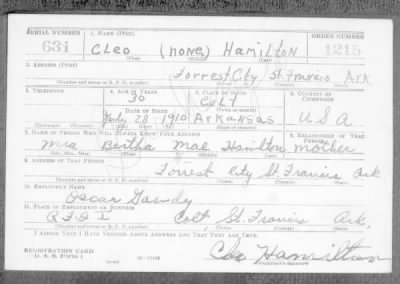 SERIAL NUMBER 1. NAME (Print) ORDER NUMBER
631 Cleo (none) Hamilton 1215
(First) (Middle) (Last)
2. ADDRESS (Print)
Forrest City St. Francis Ark
(Number and street or R. F. D. number) (Town) (County) (State)
3. TELEPHONE 4. AGE IN YEARS 5. PLACE OF BIRTH 6. COUNTRY OF CITIZENSHIP
30 Colt
DATE OF BIRTH (Town or county)
July 28 1910 Arkansas U S A
(Exchange) (Number) (Mo.) (Day) (Yr.) (State or country)
7. NAME OF PERSON WHO WILL ALWAYS KNOW YOUR ADDRESS 8. RELATIONSHIP OF THAT PERSON
Mrs Bertha Mae Hamilton mother
(Mr., Mrs., Miss) (First) (Middle) (Last)
9. ADDRESS OF THAT PERSON
Forrest City St. Francis Ark.
(Number and street or R. F. D. number) (Town) (County) (State)
10. EMPLOYER'S NAME
Oscar
11. PLACE OF EMPLOYMENT OR BUSINESS
Colt St. Francis Ark.
(Number and street or R. F. D. number) (Town) (County) (State)
I AFFIRM THAT I HAVE VERIFIED ABOVE ANSWERS AND THAT THEY ARE TRUE.
REGISTRATION CARD Cleo Hamilton
D. S. S. Form 1 (over) (Registrant's signature)